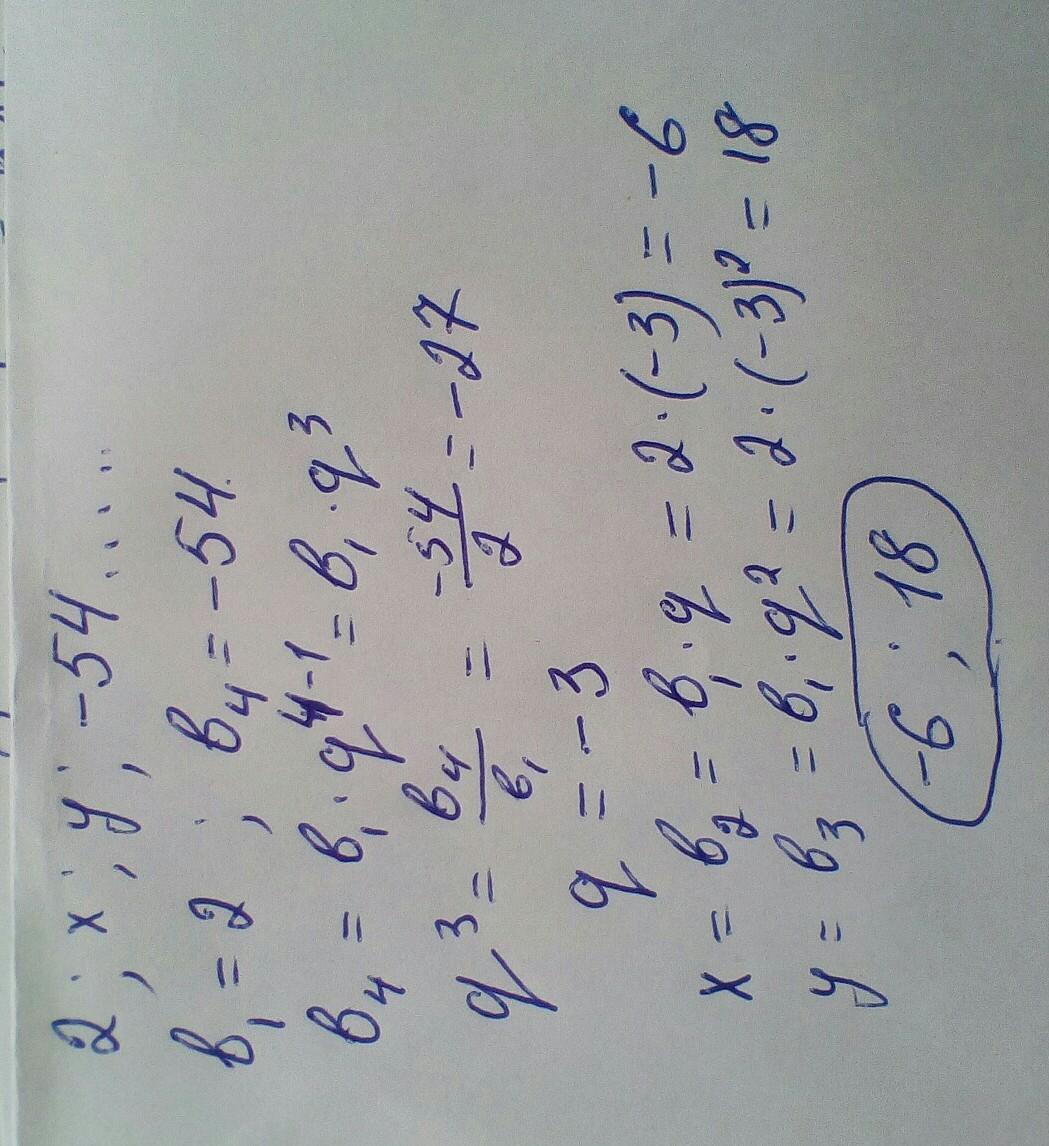 2; x; y; -54.....
b₁ = 2; b₄ = -54
b₄ = b₁ · q⁴⁻¹ = b₁ · q³
q³ = b₄/b₁ = -54/2 = -27
q = -3
x = b₂ = b₁ · q = 2 · (-3) = -6
y = b₃ = b₁ · q² = 2 · (-3)² = 18
-6; 18